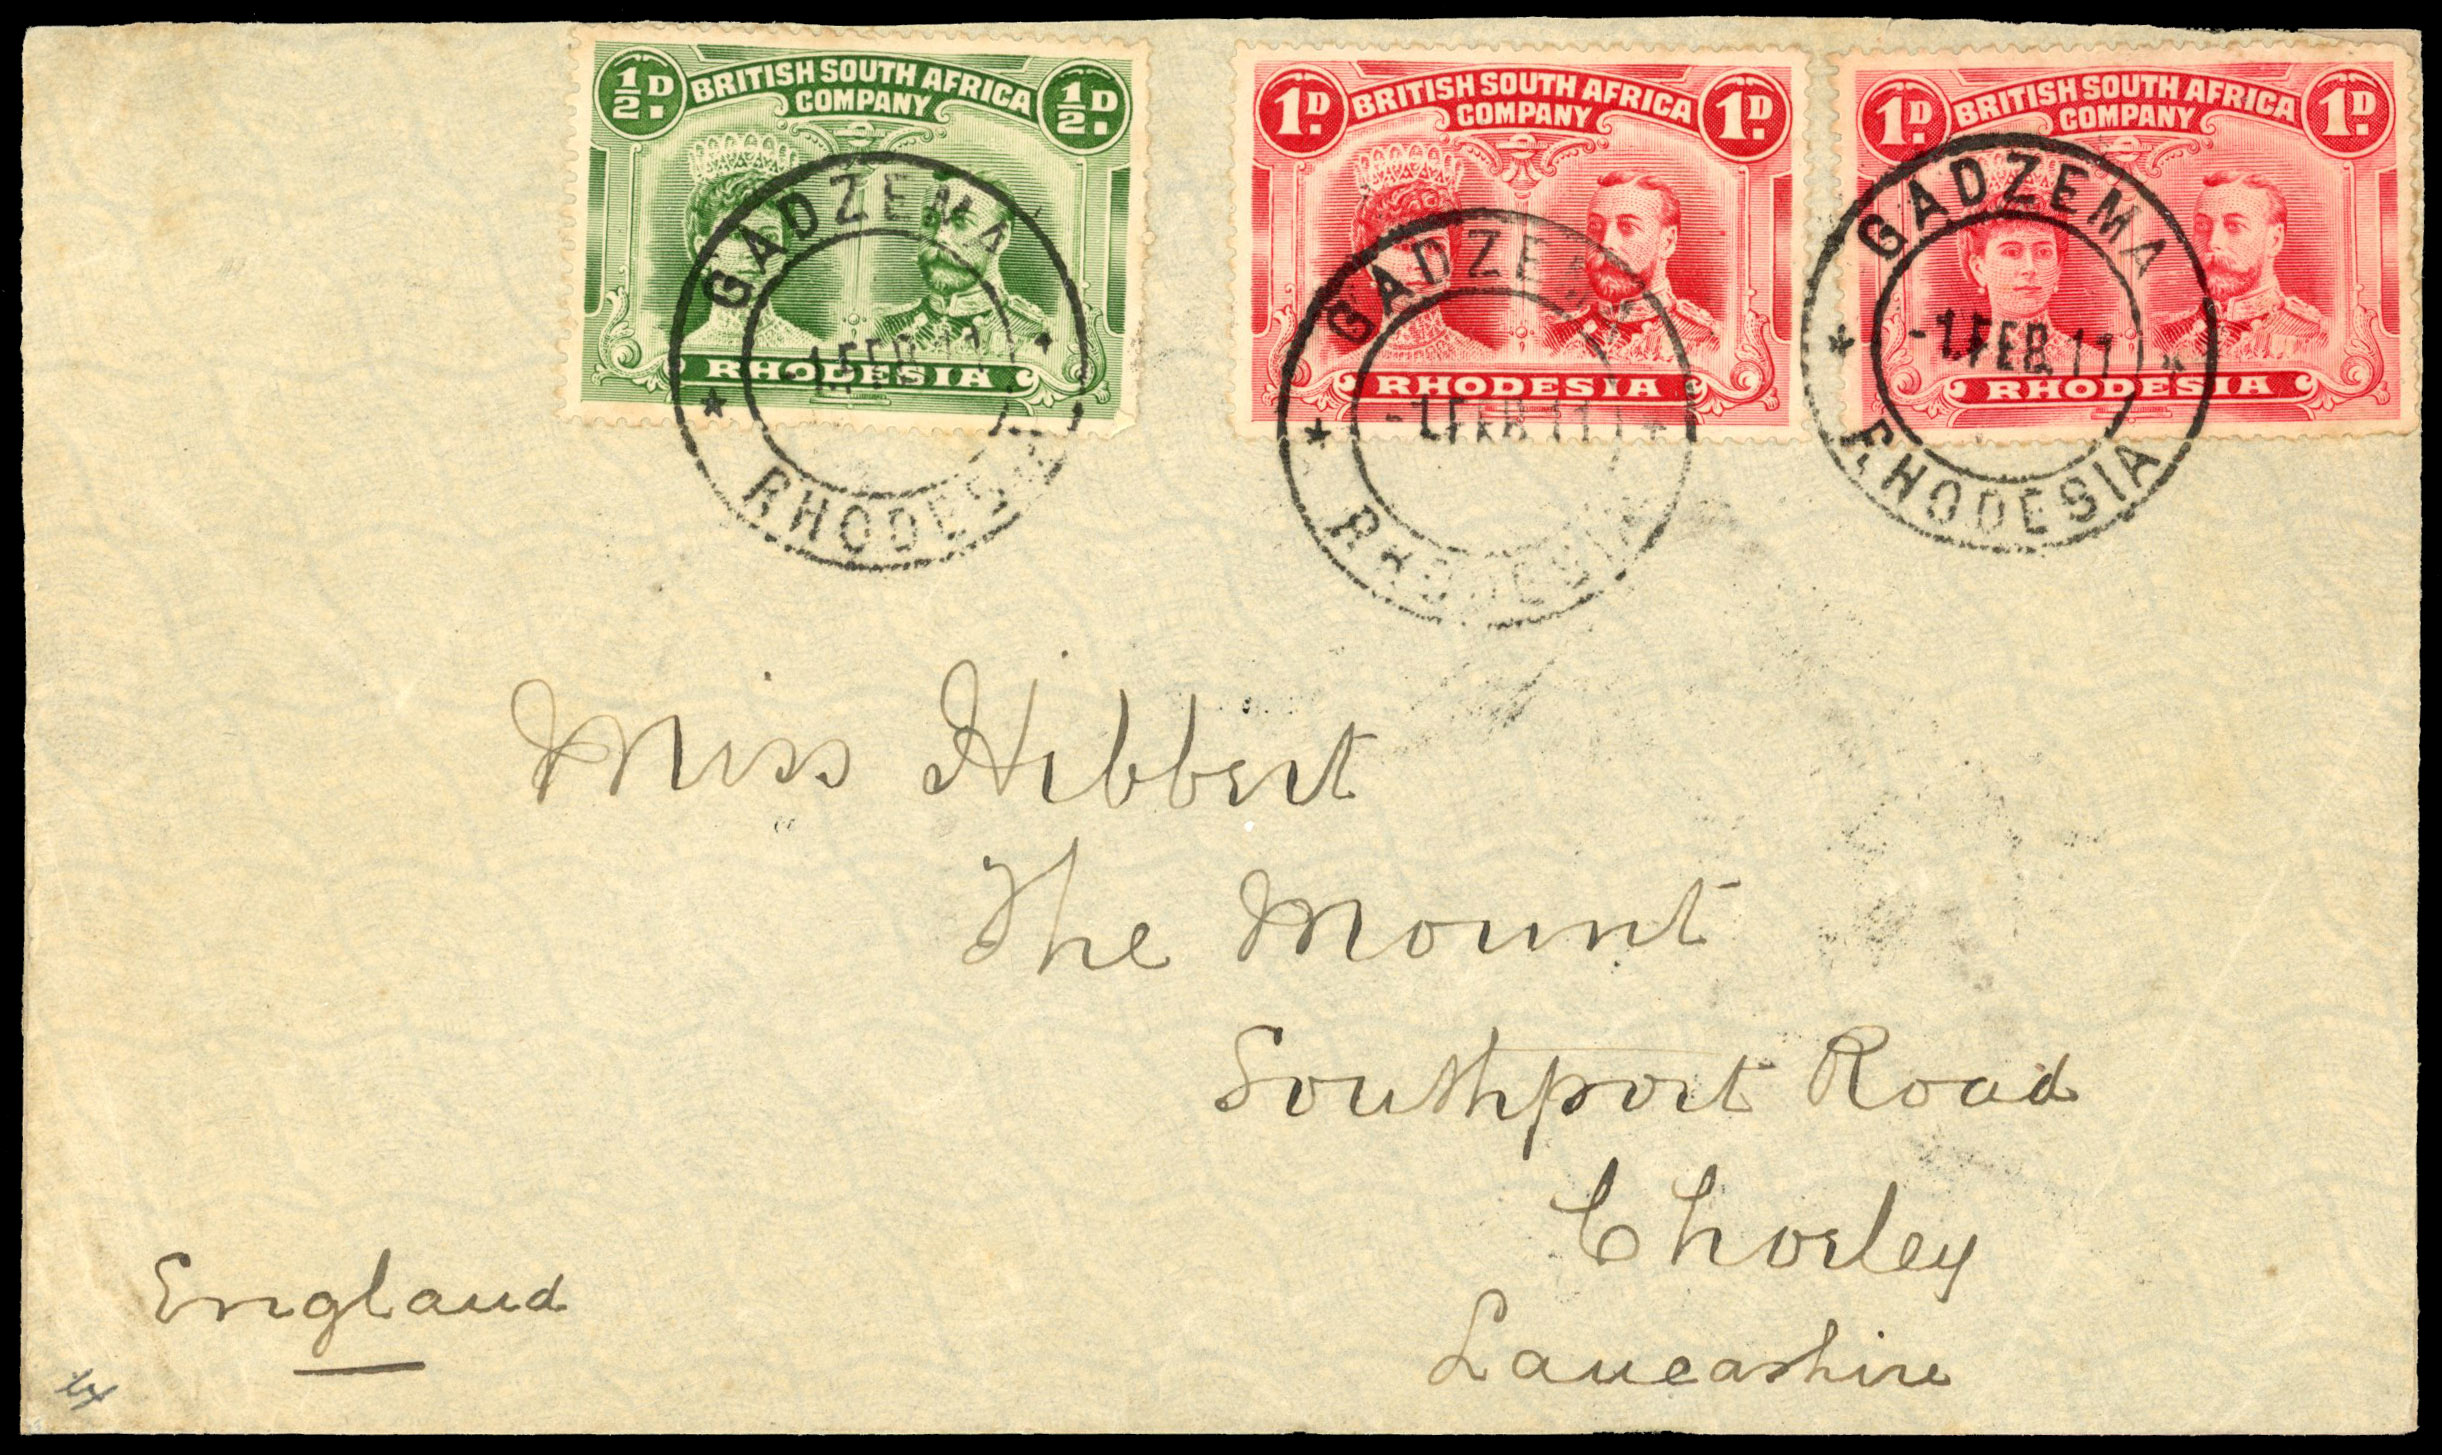 ½D. BRITISH SOUTH AFRICA COMPANY ½D.
RHODESIA
1D. BRITISH SOUTH AFRICA COMPANY 1D.
RHODESIA
1D. BRITISH SOUTH AFRICA COMPANY 1D.
RHODESIA
GADZEMA
-1.FEB.11
RHODESIA
GADZEMA
-1.FEB.11
RHODESIA
GADZEMA
-1.FEB.11
RHODESIA
Miss Hibbert
The Mount
Southport Road
Chorley
Lancashire
England